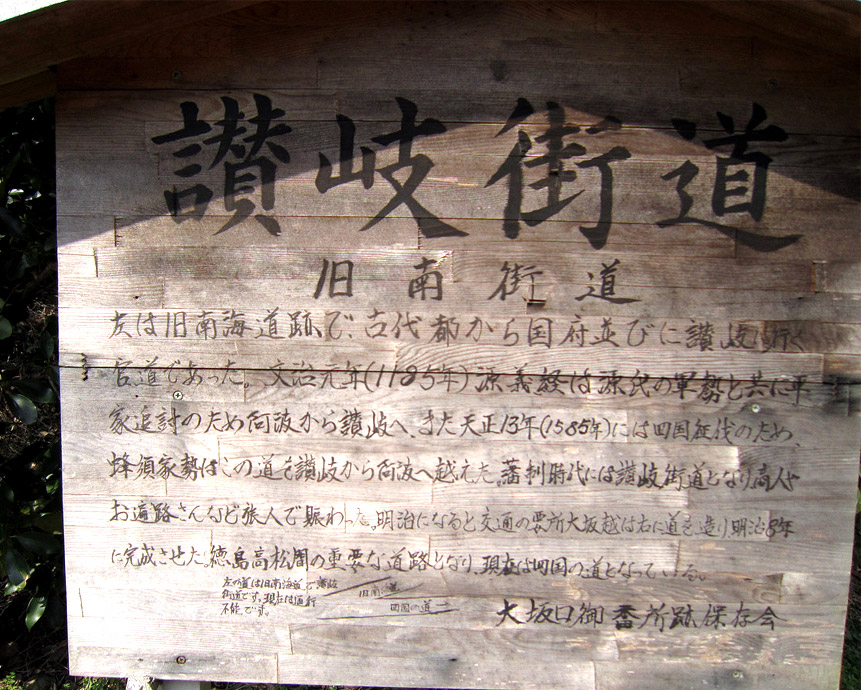 讃岐街道
旧南街道
左は旧南海道跡で、古代都から国府並びに讃岐へ行く
官道であった。文治元年(1185年)源義経は源氏の軍勢と共に平
家追討のため阿波から讃岐へ、また天正13年(1585年)には四国征伐のため、
蜂須家勢はこの道を讃岐から阿波へ越えた。藩制時代には讃岐街道となり商人や
お遍路さんなど旅人で賑わった。明治になると交通の要所大坂越は右に道を造り、明治8年
に完成させた。徳島高松間の重要な道路となり、現在は四国の道となっている。
左の道は旧南海道で讃岐
街道です。現在は通行
不能です。
旧南道
四国の道
大坂口御番所跡保存会